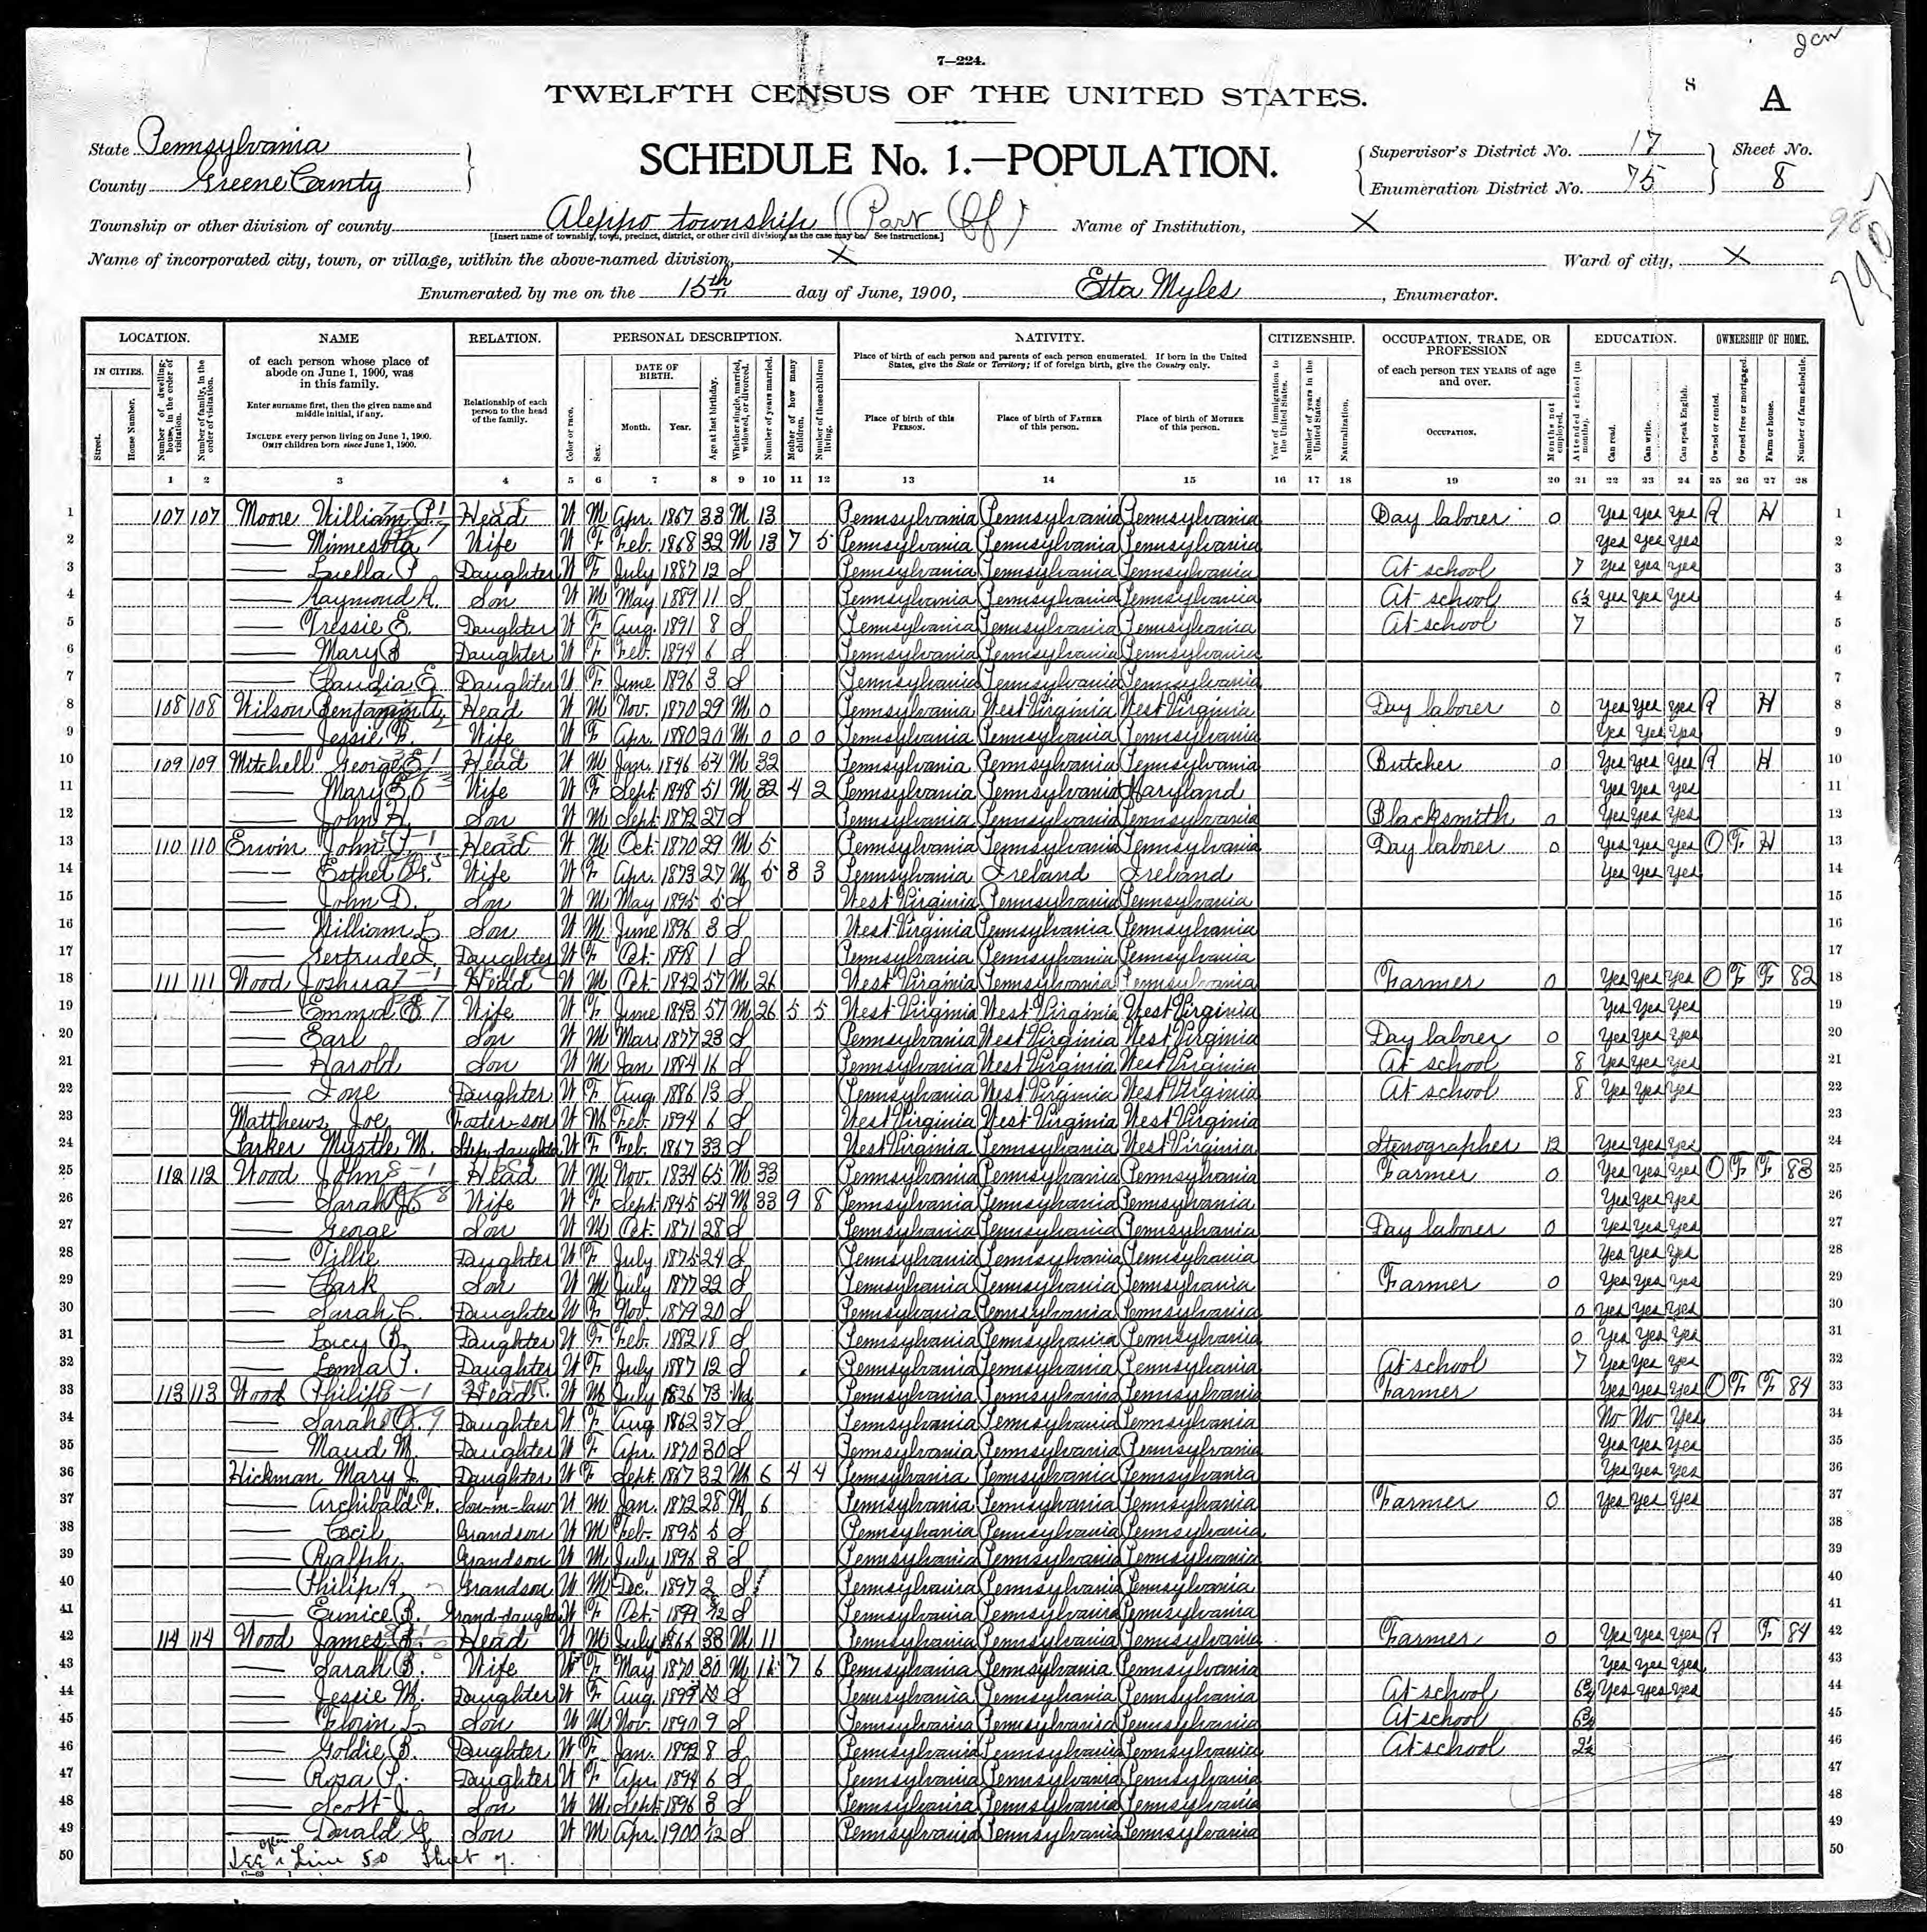 Jan
7—224.
TWELFTH CENSUS OF THE UNITED STATES.
8 A
State Pennsylvania
County Greene County
SCHEDULE No. 1.—POPULATION.
Supervisor's District No. 17
Enumeration District No. 75
Sheet No. 8
Township or other division of county Aleppo township (Part Of)
[Insert name of township, town, precinct, district, or other civil division, as the case may be. See instructions.]
Name of Institution, X
Name of incorporated city, town, or village, within the above-named division, X
Ward of city, X
Enumerated by me on the 15th day of June, 1900, Etta Myles, Enumerator.
LOCATION. NAME RELATION. PERSONAL DESCRIPTION. NATIVITY. CITIZENSHIP. OCCUPATION, TRADE, OR PROFESSION EDUCATION. OWNERSHIP OF HOME.
IN CITIES. Street. House Number. Number of dwelling-house, in the order of visitation. Number of family, in the order of visitation.
of each person whose place of abode on June 1, 1900, was in this family.
Enter surname first, then the given name and middle initial, if any.
INCLUDE every person living on June 1, 1900. OMIT children born since June 1, 1900.
Relationship of each person to the head of the family.
Color or race. Sex. DATE OF BIRTH. Month. Year. Age at last birthday. Whether single, married, widowed, or divorced. Number of years married. Mother of how many children. Number of these children living.
Place of birth of each person and parents of each person enumerated. If born in the United States, give the State or Territory; if of foreign birth, give the Country only.
Place of birth of this PERSON. Place of birth of FATHER of this person. Place of birth of MOTHER of this person.
Year of immigration to the United States. Number of years in the United States. Naturalization.
of each person TEN YEARS of age and over.
OCCUPATION. Months not employed.
Attended school (in months). Can read. Can write. Can speak English.
Owned or rented. Owned free or mortgaged. Farm or house. Number of farm schedule.
1 2 3 4 5 6 7 8 9 10 11 12 13 14 15 16 17 18 19 20 21 22 23 24 25 26 27 28
1 107 107 Moore William P. Head W M Apr. 1867 33 M 13 Pennsylvania Pennsylvania Pennsylvania Day laborer 0 Yes Yes Yes R H 1
2 — Minnesota Wife W F Feb. 1868 32 M 13 7 5 Pennsylvania Pennsylvania Pennsylvania Yes Yes Yes 2
3 — Luella P. Daughter W F July 1887 12 S Pennsylvania Pennsylvania Pennsylvania At school 7 Yes Yes Yes 3
4 — Raymond R. Son W M May 1889 11 S Pennsylvania Pennsylvania Pennsylvania At school 6½ Yes Yes Yes 4
5 — Tressie E. Daughter W F Aug. 1891 8 S Pennsylvania Pennsylvania Pennsylvania At school 7 5
6 — Mary Daughter W F Feb. 1894 6 S Pennsylvania Pennsylvania Pennsylvania 6
7 — Claudia E. Daughter W F June 1896 3 S Pennsylvania Pennsylvania Pennsylvania 7
8 108 108 Wilson Benjamin Head W M Nov. 1870 29 M 0 Pennsylvania West Virginia West Virginia Day laborer 0 Yes Yes Yes R H 8
9 — Jessie F. Wife W F Apr. 1880 20 M 0 0 0 Pennsylvania Pennsylvania Pennsylvania Yes Yes Yes 9
10 109 109 Mitchell George Head W M Jan. 1846 54 M 32 Pennsylvania Pennsylvania Pennsylvania Butcher 0 Yes Yes Yes R H 10
11 — Mary Wife W F Sept. 1848 51 M 32 4 2 Pennsylvania Pennsylvania Maryland Yes Yes Yes 11
12 — John Son W M Sept. 1872 27 S Pennsylvania Pennsylvania Pennsylvania Blacksmith 0 Yes Yes Yes 12
13 110 110 Erwin John Head W M Oct. 1870 29 M 5 Pennsylvania Pennsylvania Pennsylvania Day laborer 0 Yes Yes Yes O F H 13
14 — Esther Wife W F Apr. 1873 27 M 5 3 3 Pennsylvania Ireland Ireland Yes Yes Yes 14
15 — John D. Son W M May 1895 5 S West Virginia Pennsylvania Pennsylvania 15
16 — William L. Son W M June 1896 3 S West Virginia Pennsylvania Pennsylvania 16
17 — Gertrude Daughter W F Oct. 1898 1 S Pennsylvania Pennsylvania Pennsylvania 17
18 111 111 Wood Joshua Head W M Oct. 1842 57 M 26 West Virginia Pennsylvania Pennsylvania Farmer 0 Yes Yes Yes O F F 82 18
19 — Emma Wife W F June 1843 57 M 26 5 5 West Virginia West Virginia West Virginia Yes Yes Yes 19
20 — Earl Son W M Mar. 1877 23 S Pennsylvania West Virginia West Virginia Day laborer 0 Yes Yes Yes 20
21 — Harold Son W M Jan. 1884 16 S Pennsylvania West Virginia West Virginia At school 8 Yes Yes Yes 21
22 — Ione Daughter W F Aug. 1886 13 S Pennsylvania West Virginia West Virginia At school 8 Yes Yes Yes 22
23 Matthews Joe Foster-son W M Feb. 1894 6 S West Virginia West Virginia West Virginia 23
24 Parker Myrtle M. Step-daughter W F Feb. 1867 33 S West Virginia Pennsylvania West Virginia Stenographer 12 Yes Yes Yes 24
25 112 112 Wood John Head W M Nov. 1834 65 M 33 Pennsylvania Pennsylvania Pennsylvania Farmer 0 Yes Yes Yes O F F 83 25
26 — Sarah Wife W F Sept. 1845 54 M 33 9 8 Pennsylvania Pennsylvania Pennsylvania Yes Yes Yes 26
27 — George Son W M Oct. 1871 28 S Pennsylvania Pennsylvania Pennsylvania Day laborer 0 Yes Yes Yes 27
28 — Tillie Daughter W F July 1875 24 S Pennsylvania Pennsylvania Pennsylvania Yes Yes Yes 28
29 — Clark Son W M July 1877 22 S Pennsylvania Pennsylvania Pennsylvania Farmer 0 Yes Yes Yes 29
30 — Sarah C. Daughter W F Nov. 1879 20 S Pennsylvania Pennsylvania Pennsylvania 0 Yes Yes Yes 30
31 — Lucy B. Daughter W F Feb. 1882 18 S Pennsylvania Pennsylvania Pennsylvania 0 Yes Yes Yes 31
32 — Lemma P. Daughter W F July 1887 12 S Pennsylvania Pennsylvania Pennsylvania At school 7 Yes Yes Yes 32
33 113 113 Wood Philip Head W M July 1826 73 Wd Pennsylvania Pennsylvania Pennsylvania Farmer Yes Yes Yes O F F 84 33
34 — Sarah Daughter W F Aug. 1862 37 S Pennsylvania Pennsylvania Pennsylvania No No Yes 34
35 — Maud M. Daughter W F Apr. 1870 30 S Pennsylvania Pennsylvania Pennsylvania Yes Yes Yes 35
36 Hickman Mary J. Daughter W F Sept. 1867 32 M 6 4 4 Pennsylvania Pennsylvania Pennsylvania Yes Yes Yes 36
37 — Archibald F. Son-in-law W M Jan. 1872 28 M 6 Pennsylvania Pennsylvania Pennsylvania Farmer 0 Yes Yes Yes 37
38 — Cecil Grandson W M Feb. 1895 5 S Pennsylvania Pennsylvania Pennsylvania 38
39 — Ralph Grandson W M July 1896 3 S Pennsylvania Pennsylvania Pennsylvania 39
40 — Philip R. Grandson W M Dec. 1897 2 S Pennsylvania Pennsylvania Pennsylvania 40
41 — Eunice B. Grand-daughter W F Oct. 1899 S Pennsylvania Pennsylvania Pennsylvania 41
42 114 114 Wood James Head W M July 1866 33 M 11 Pennsylvania Pennsylvania Pennsylvania Farmer 0 Yes Yes Yes R F 84 42
43 — Sarah B. Wife W F May 1870 30 M 11 7 6 Pennsylvania Pennsylvania Pennsylvania Yes Yes Yes 43
44 — Jessie M. Daughter W F Aug. 10 S Pennsylvania Pennsylvania Pennsylvania At school Yes Yes Yes 44
45 — Son W M Nov. 1890 9 S Pennsylvania Pennsylvania Pennsylvania At school 45
46 — Goldie B. Daughter W F Jan. 1892 8 S Pennsylvania Pennsylvania Pennsylvania At school 2½ 46
47 — Rosa P. Daughter W F Apr. 1894 6 S Pennsylvania Pennsylvania Pennsylvania 47
48 — Scott J. Son W M Sept. 1896 3 S Pennsylvania Pennsylvania Pennsylvania 48
49 — Donald G. Son W M Apr. 1900 1/12 S Pennsylvania Pennsylvania Pennsylvania 49
50 See Line 50 Sheet 7. 50